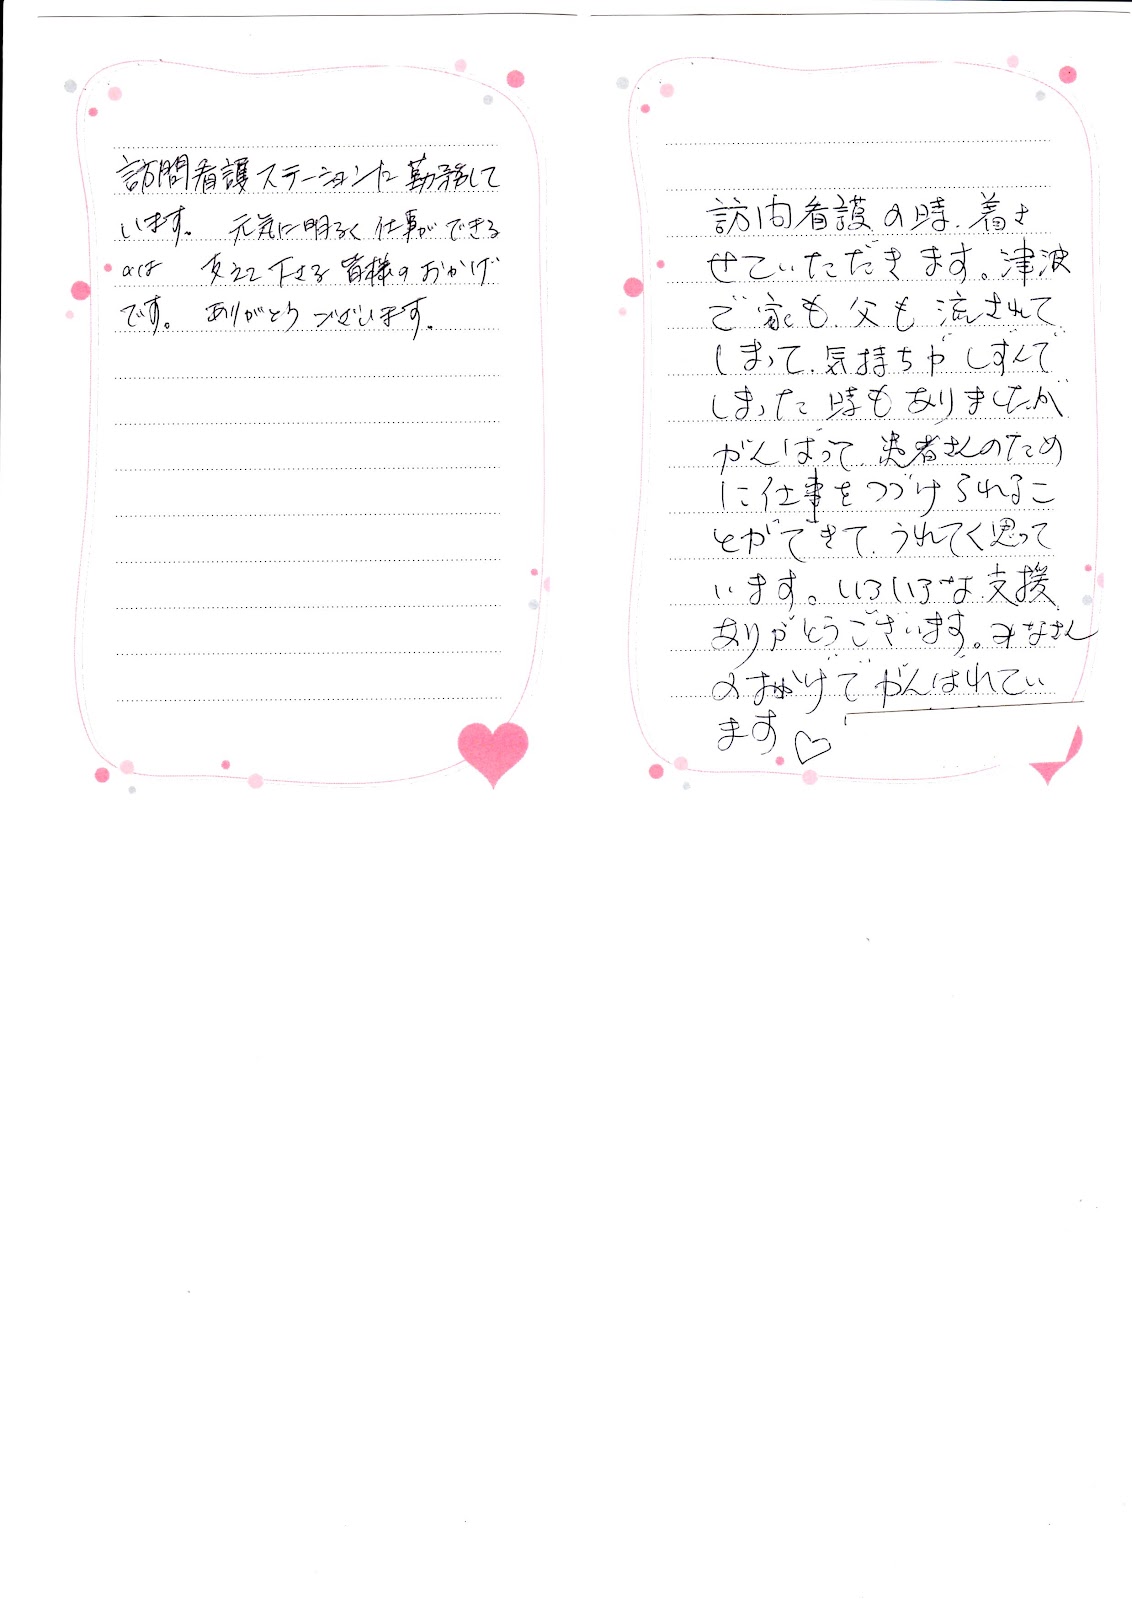 訪問看護ステーションに勤務して
います。 元気に明るく仕事ができる
のは 支えて下さる皆様のおかげ
です。 ありがとうございます。
訪问看護の時、着さ
せていただきます。津波
で家も、父も流されて
しまって、気持ちがしずんで
しまった時もありましたが
がんばって、患者さんのため
に仕事をつづけられるこ
とができて、うれてく思って
います。いろいろな支援
ありがとうございます。みなさん
のおかげでがんばれてい
ます♡